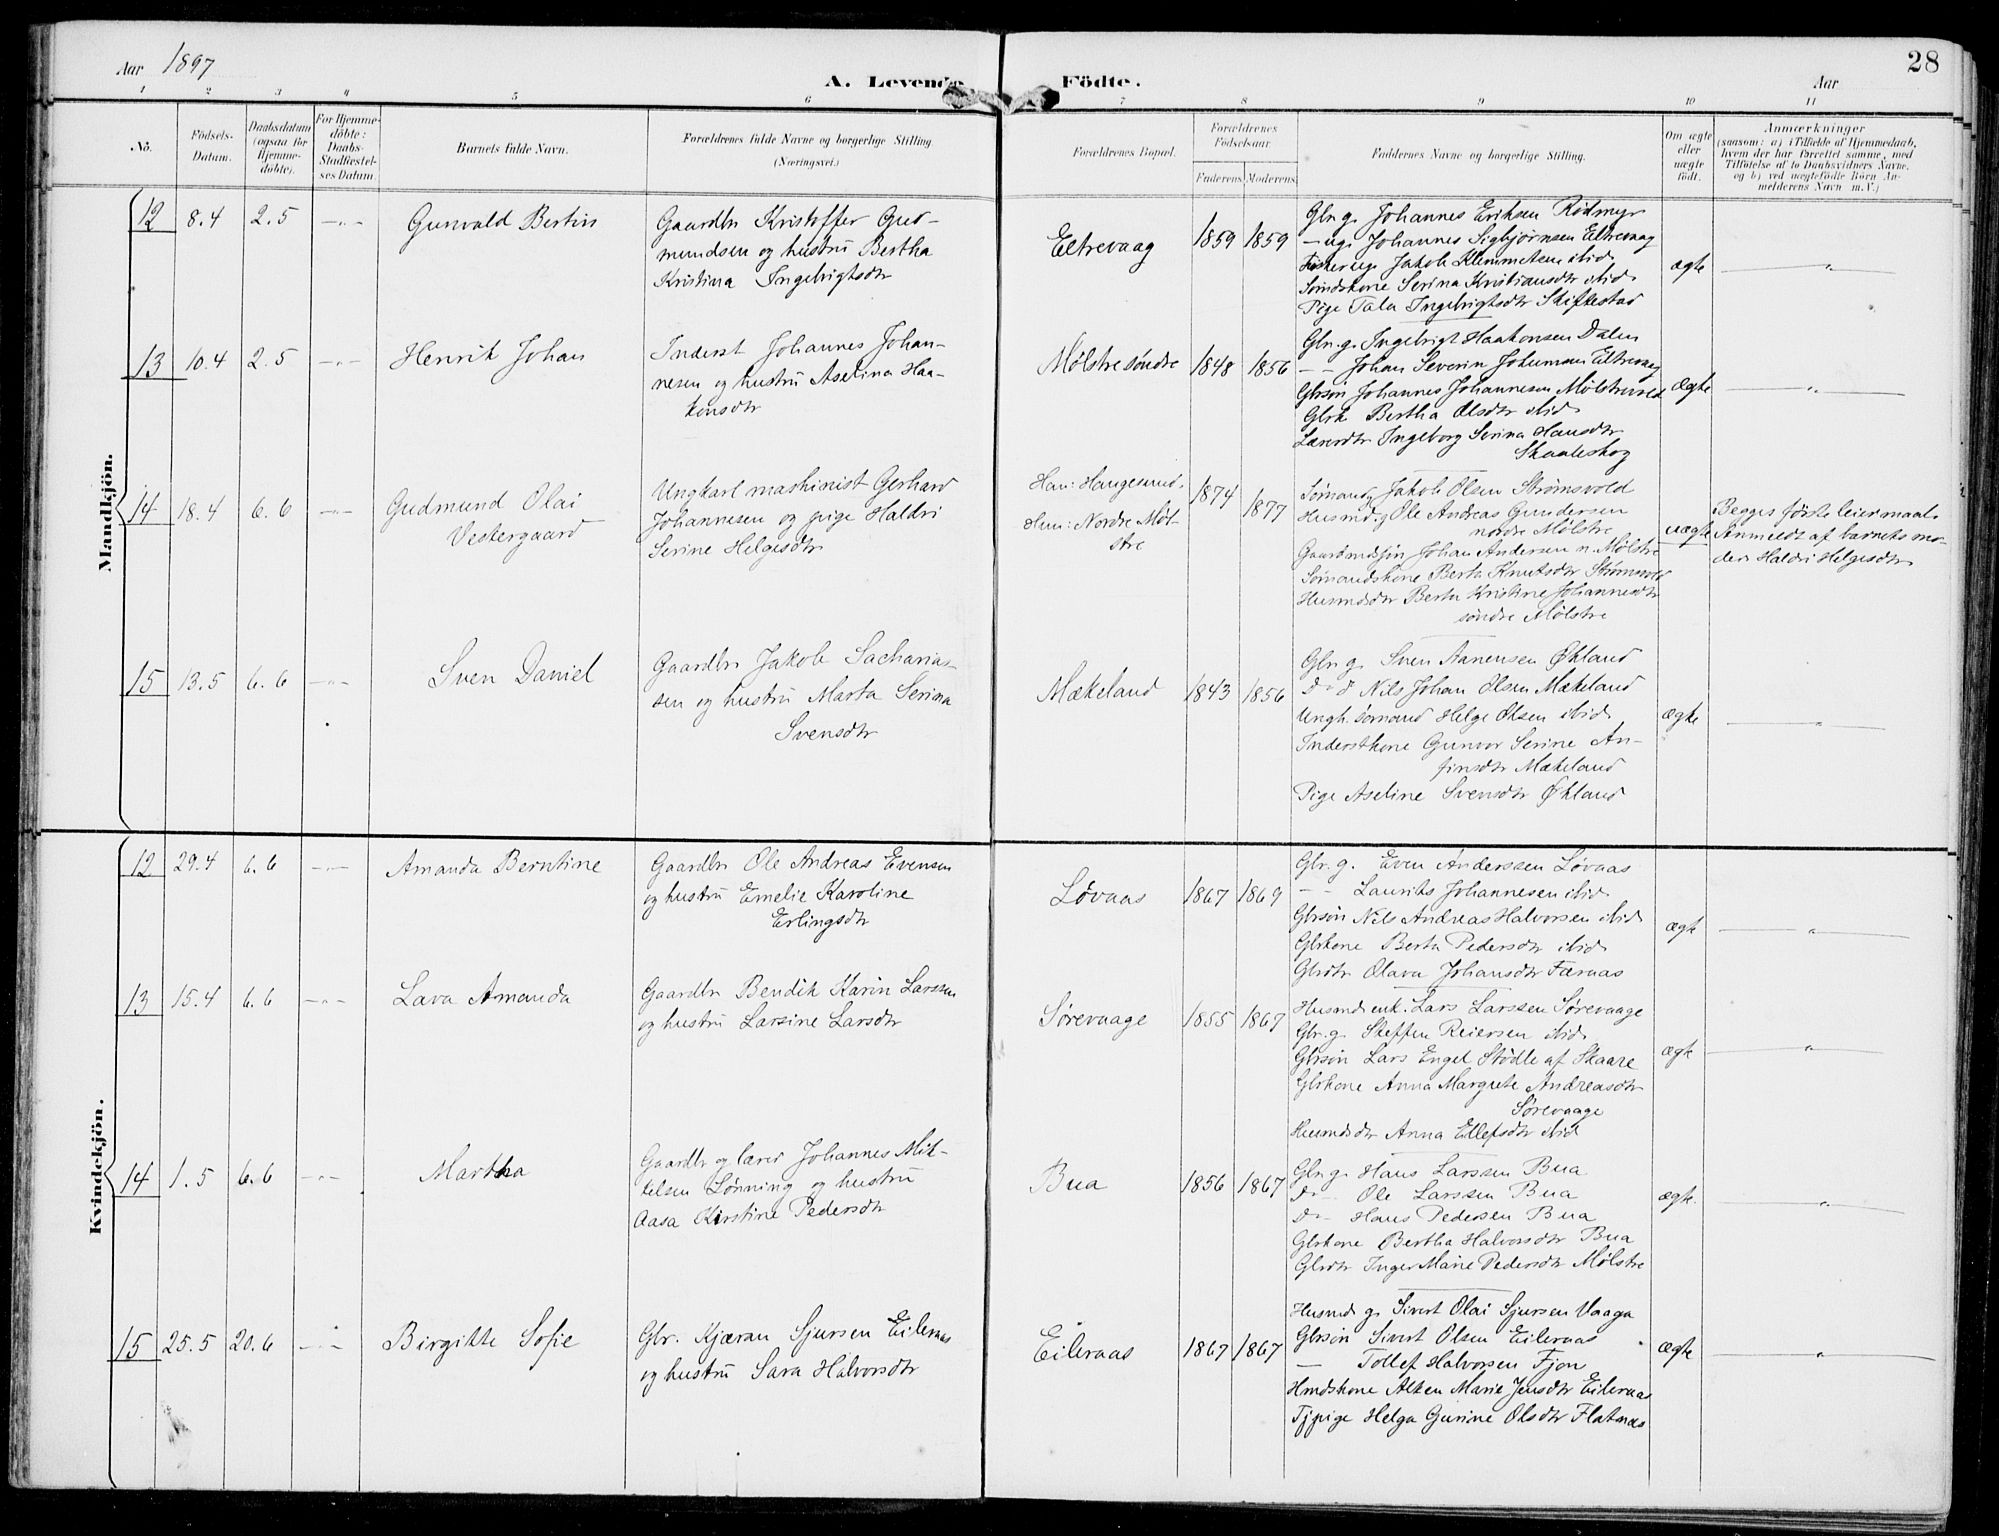 Aar 1897
A. Levende Födte.
Aar
28
1 2 3 4 5 6 7 8 9 10 11
No.
Födsels-
Datum.
Daabsdatum
(ogsaa för
Hjemme-
döbte).
For Hjemme-
döbte:
Daabs-
Stadfæstel-
ses Datum.
Barnets fulde Navn.
Forældrenes fulde Navne og borgerlige Stilling
(Næringsvei.)
Forældrenes Bopæl.
Forældrenes
Födselsaar.
Faderens. Moderens.
Faddernes Navne og borgerlige Stilling.
Om ægte
eller
uægte
födt.
Anmærkninger
(saasom: a) i Tilfælde af Hjemmedaab,
hvem der har forrettet samme, med
Tilföielse af to Daabsvidners Navne.
og b) ved uægtefödte Börn An-
melderens Navn m. V.)
Mandkjön.
12 8.4 2.5 —„— Gunvald Bertin
Gaardbr Kristoffer Gud-
mundsen og hustru Bertha
Kristina Ingebrigtsdtr
Eltrevaag 1859 1859
Gbr.g. Johannes Eriksen Rødmyr
— ug. Johannes Sigbjørnsen Eltrevaag
Fisker ug. Jakob Klemmetsen ibid
Sømdskone Serina Kristiansdtr ibid
Pige Tala Ingebrigtsdtr Skiftestad
ægte —„—
13 10.4 2.5 —„— Henrik Johan
Inderst Johannes Johan-
nesen og hustru Aselina Haa-
konsdtr
Mølstre søndre 1848 1856
Gbr.g. Ingebrigt Haakonsen Dalen
— — Johan Severin Johannesen Eltrevaag
Gbrsøn Johannes Johannesen Mølstrevold
Gbrk Bertha Olsdtr ibid
Lærerdtr Ingeborg Serina Hansdtr
Skaaleskog
ægte —„—
14 18.4 6.6 —„— Gudmund Olai
Vestergaard
Ungkarl maskinist Gerhard
Johannesen og pige Haldri
Serine Helgesdtr
Han: Haugesund.
Hun: Nordre Møl-
stre
1874 1877
Sømand g Jakob Olsen Strømsvold
Husmd.g Ole Andreas Gundersen
nordre Mølstre
Gaardmdsøn Johan Andersen n. Mølstre
Sømandskone Berta Knutsdtr Strømsvold
Husmdsdtr Berta Kristine Johannesdtr
søndre Mølstre
uægte
Begges første leiermaal.
Anmeldt af barnets mo-
der Haldri Helgesdtr
15 13.5 6.6 —„— Sven Daniel
Gaardbr Jakob Sacharias-
sen og hustru Marta Serina
Svensdtr
Mækeland 1843 1856
Gbr.g. Sven Aanensen Økland
D° d° Nils Johan Olsen Mækeland
Ungk. sømand Helge Olsen ibid
Inderstkone Gunvor Serine An-
finsdtr Mækeland
Pige Aseline Svensdtr Økland
ægte —„—
Kvindekjön.
12 29.4 6.6 —„— Amanda Berntine
Gaardbr Ole Andreas Evensen
og hustru Emelie Karoline
Erlingsdtr
Løvaas 1867 1869
Gbr.g. Even Anderssen Løvaas
— — Laurits Johannesen ibid
Gbrsøn Nils Andreas Halvorsen ibid
Gbrkone Berta Pedersdtr ibid
Gbrdtr Olava Johansdtr Færaas
ægte —„—
13 15.4 6.6 —„— Lava Amanda
Gaardbr Bendik Karin Larssen
og hustru Larsine Larsdtr
Sørevaage 1855 1867
Husmd enk. Lars Larssen Sørevaage
Gbr.g. Steffen Reiersen ibid
Gbrsøn Lars Engel Stødle af Skaare
Gbrkone Anna Margrete Andreasdtr
Sørevaage
Husmdsdtr Anna Ellefsdtr ibid
ægte —„—
14 1.5 6.6 —„— Martha
Gaardbr og lærer Johannes Mik-
kelsen Lønning og hustru
Aasa Kirstine Pedersdtr
Bua 1856 1867
Gbr.g. Hans Larssen Bua
D° — Ole Larssen Bua
D° — Hans Pedersen Bua
Gbrkone Bertha Halvorsdtr Bua
Gbrdtr Inger Marie Pedersdtr Mølstre
ægte. —„—
15 25.5 20.6 —„— Birgitte Sofie
Gbr. Kjæran Sjursen Eileraas
og hustru Sara Halvorsdtr
Eileraas 1867 1867
Husmd g. Sivert Olai Sjursen Vaaga
Gbrsøn Sivert Olsen Eileraas
— Tollef Halvorsen Fjon
Hmdskone Alken Marie Jensdtr Eileraas
Tjpige Helga Gurine Olsdtr Flatnæs
ægte —„—